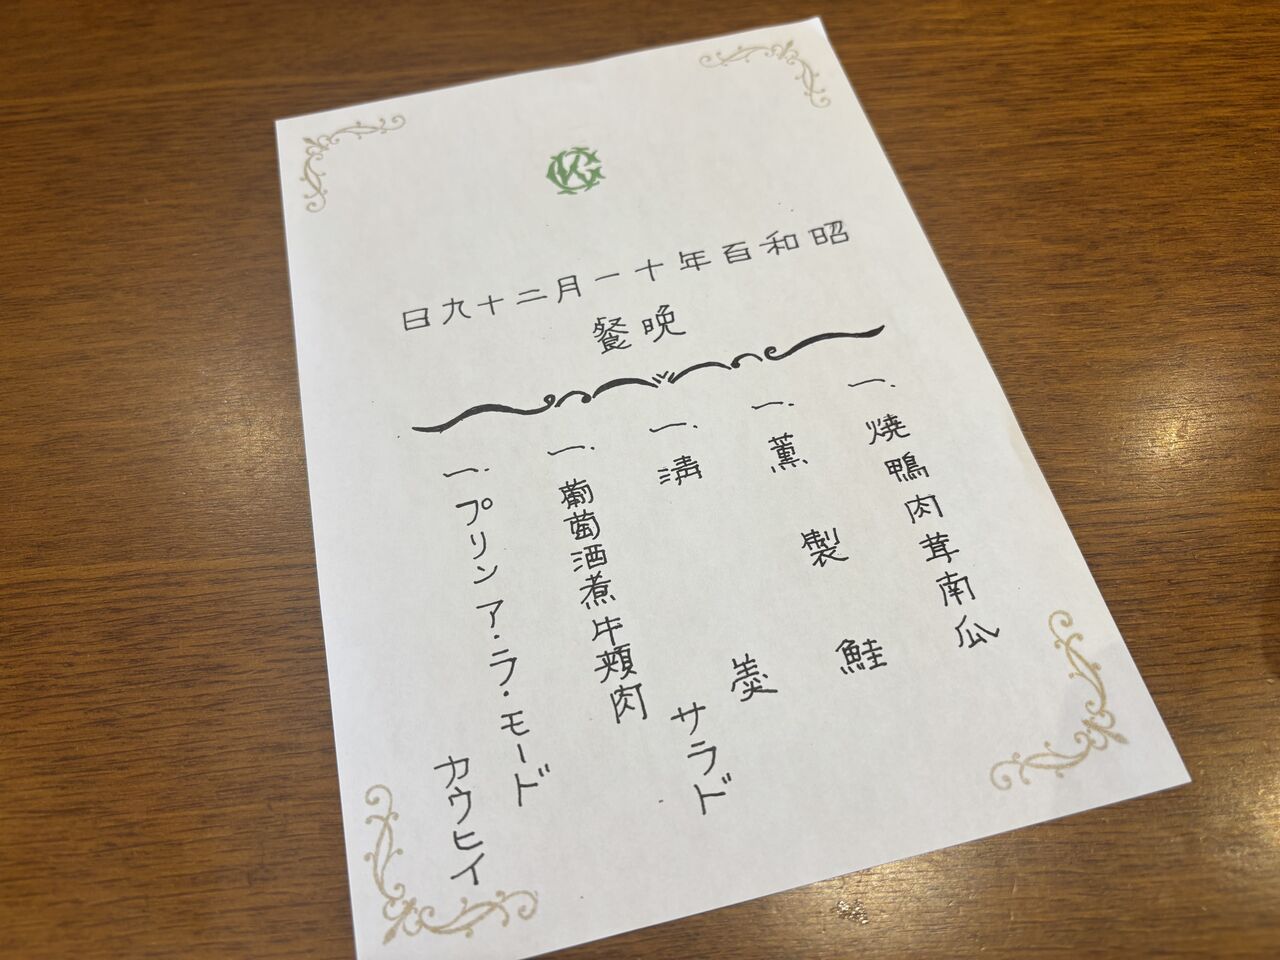 昭和百年十一月二十九日
晩餐
一.焼鴨肉茸南瓜
一.薫製鮭
一.清羹
一.葡萄酒煮牛頬肉
サラド
一.プリンア・ラ・モード
カウヒイ